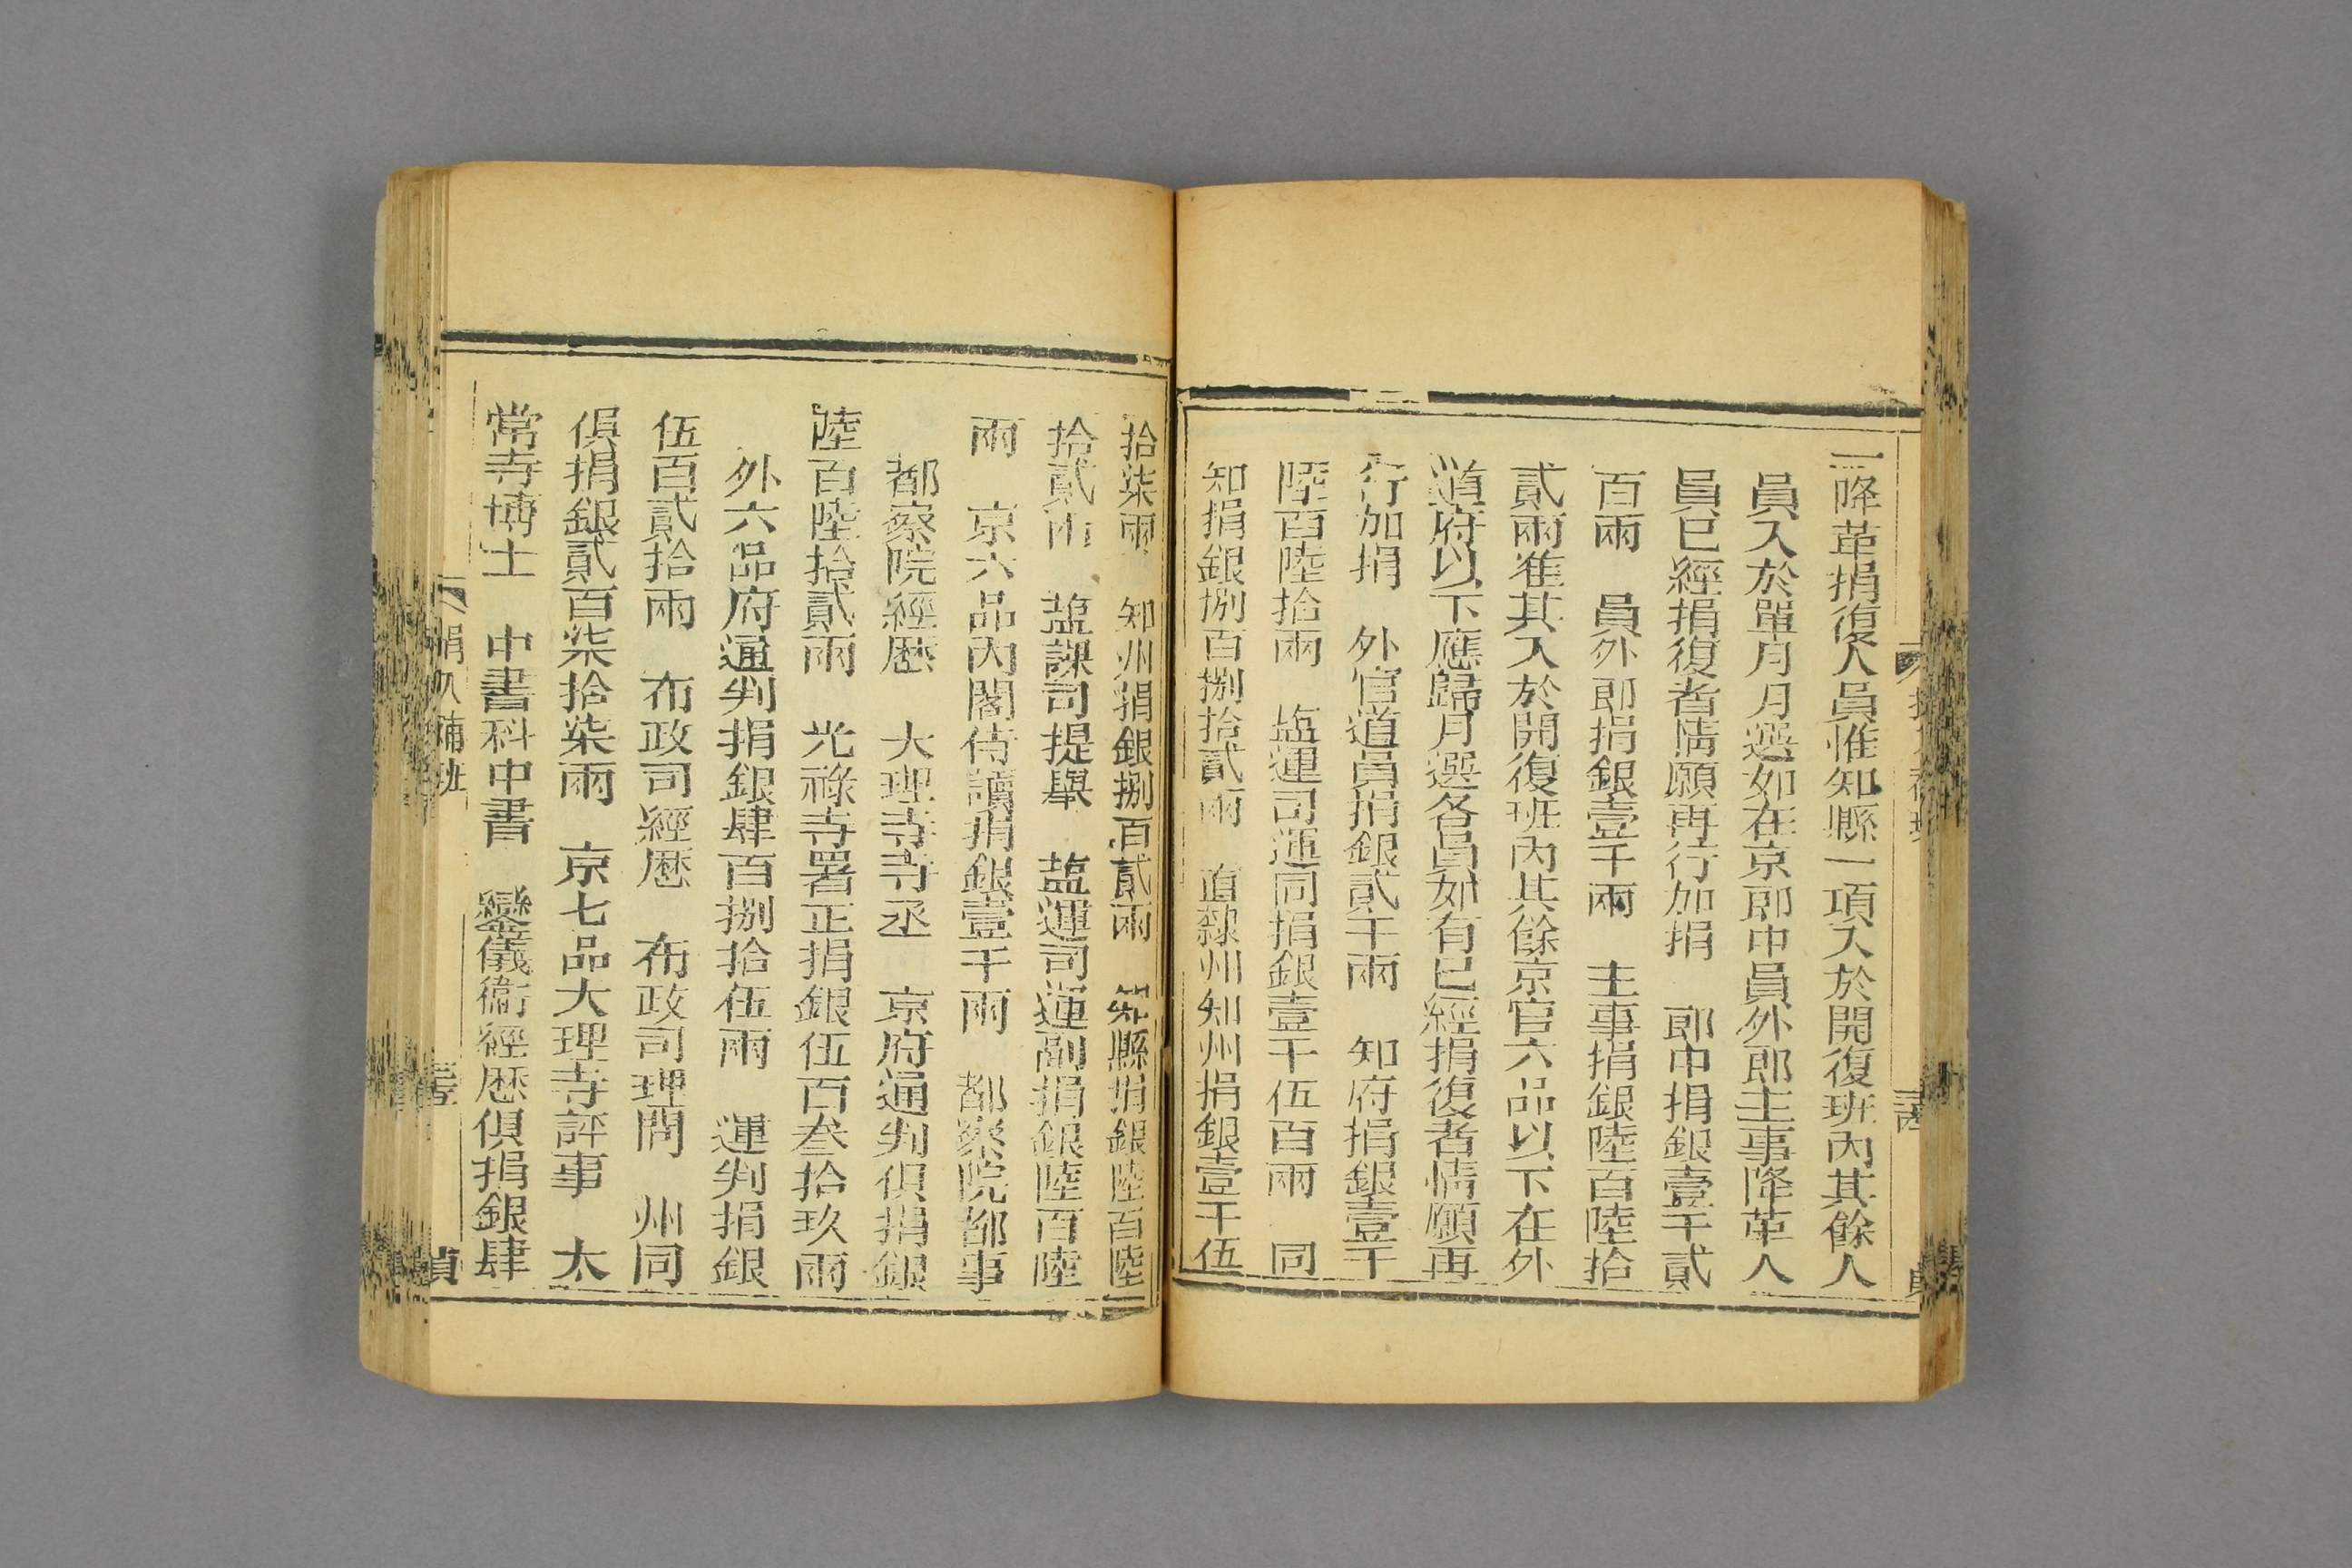 一降革捐復人員惟知縣一項入於開復班內其餘人
員入於單月月選如在京郎中員外郎主事降革人
員已經捐復者情願再行加捐　郎中捐銀壹千貳
百兩　員外郎捐銀壹千兩　主事捐銀陸百陸拾
貳兩准其入於開復班內其餘京官六品以下在外
道府以下應歸月選各員如有已經捐復者情願再
行加捐　外官道員捐銀貳千兩　知府捐銀壹千
陸百陸拾兩　盐運司運同捐銀壹千伍百兩　同
知捐銀捌百捌拾貳兩　直隸州知州捐銀壹千伍
拾柒兩　知州捐銀捌百貳兩　知縣捐銀陸百陸
拾貳兩　盐課司提舉　盐運司運副捐銀陸百陸
兩　京六品內閣侍讀捐銀壹千兩　都察院都事
都察院經歷　大理寺寺丞　京府通判俱捐銀
陸百陸拾貳兩　光祿寺署正捐銀伍百叁拾玖兩
外六品府通判捐銀肆百捌拾伍兩　運判捐銀
伍百貳拾兩　布政司經歷　布政司理問　州同
俱捐銀貳百柒拾柒兩　京七品大理寺評事　太
常寺博士　中書科中書　鑾儀衞經歷俱捐銀肆
捐 補班
貞